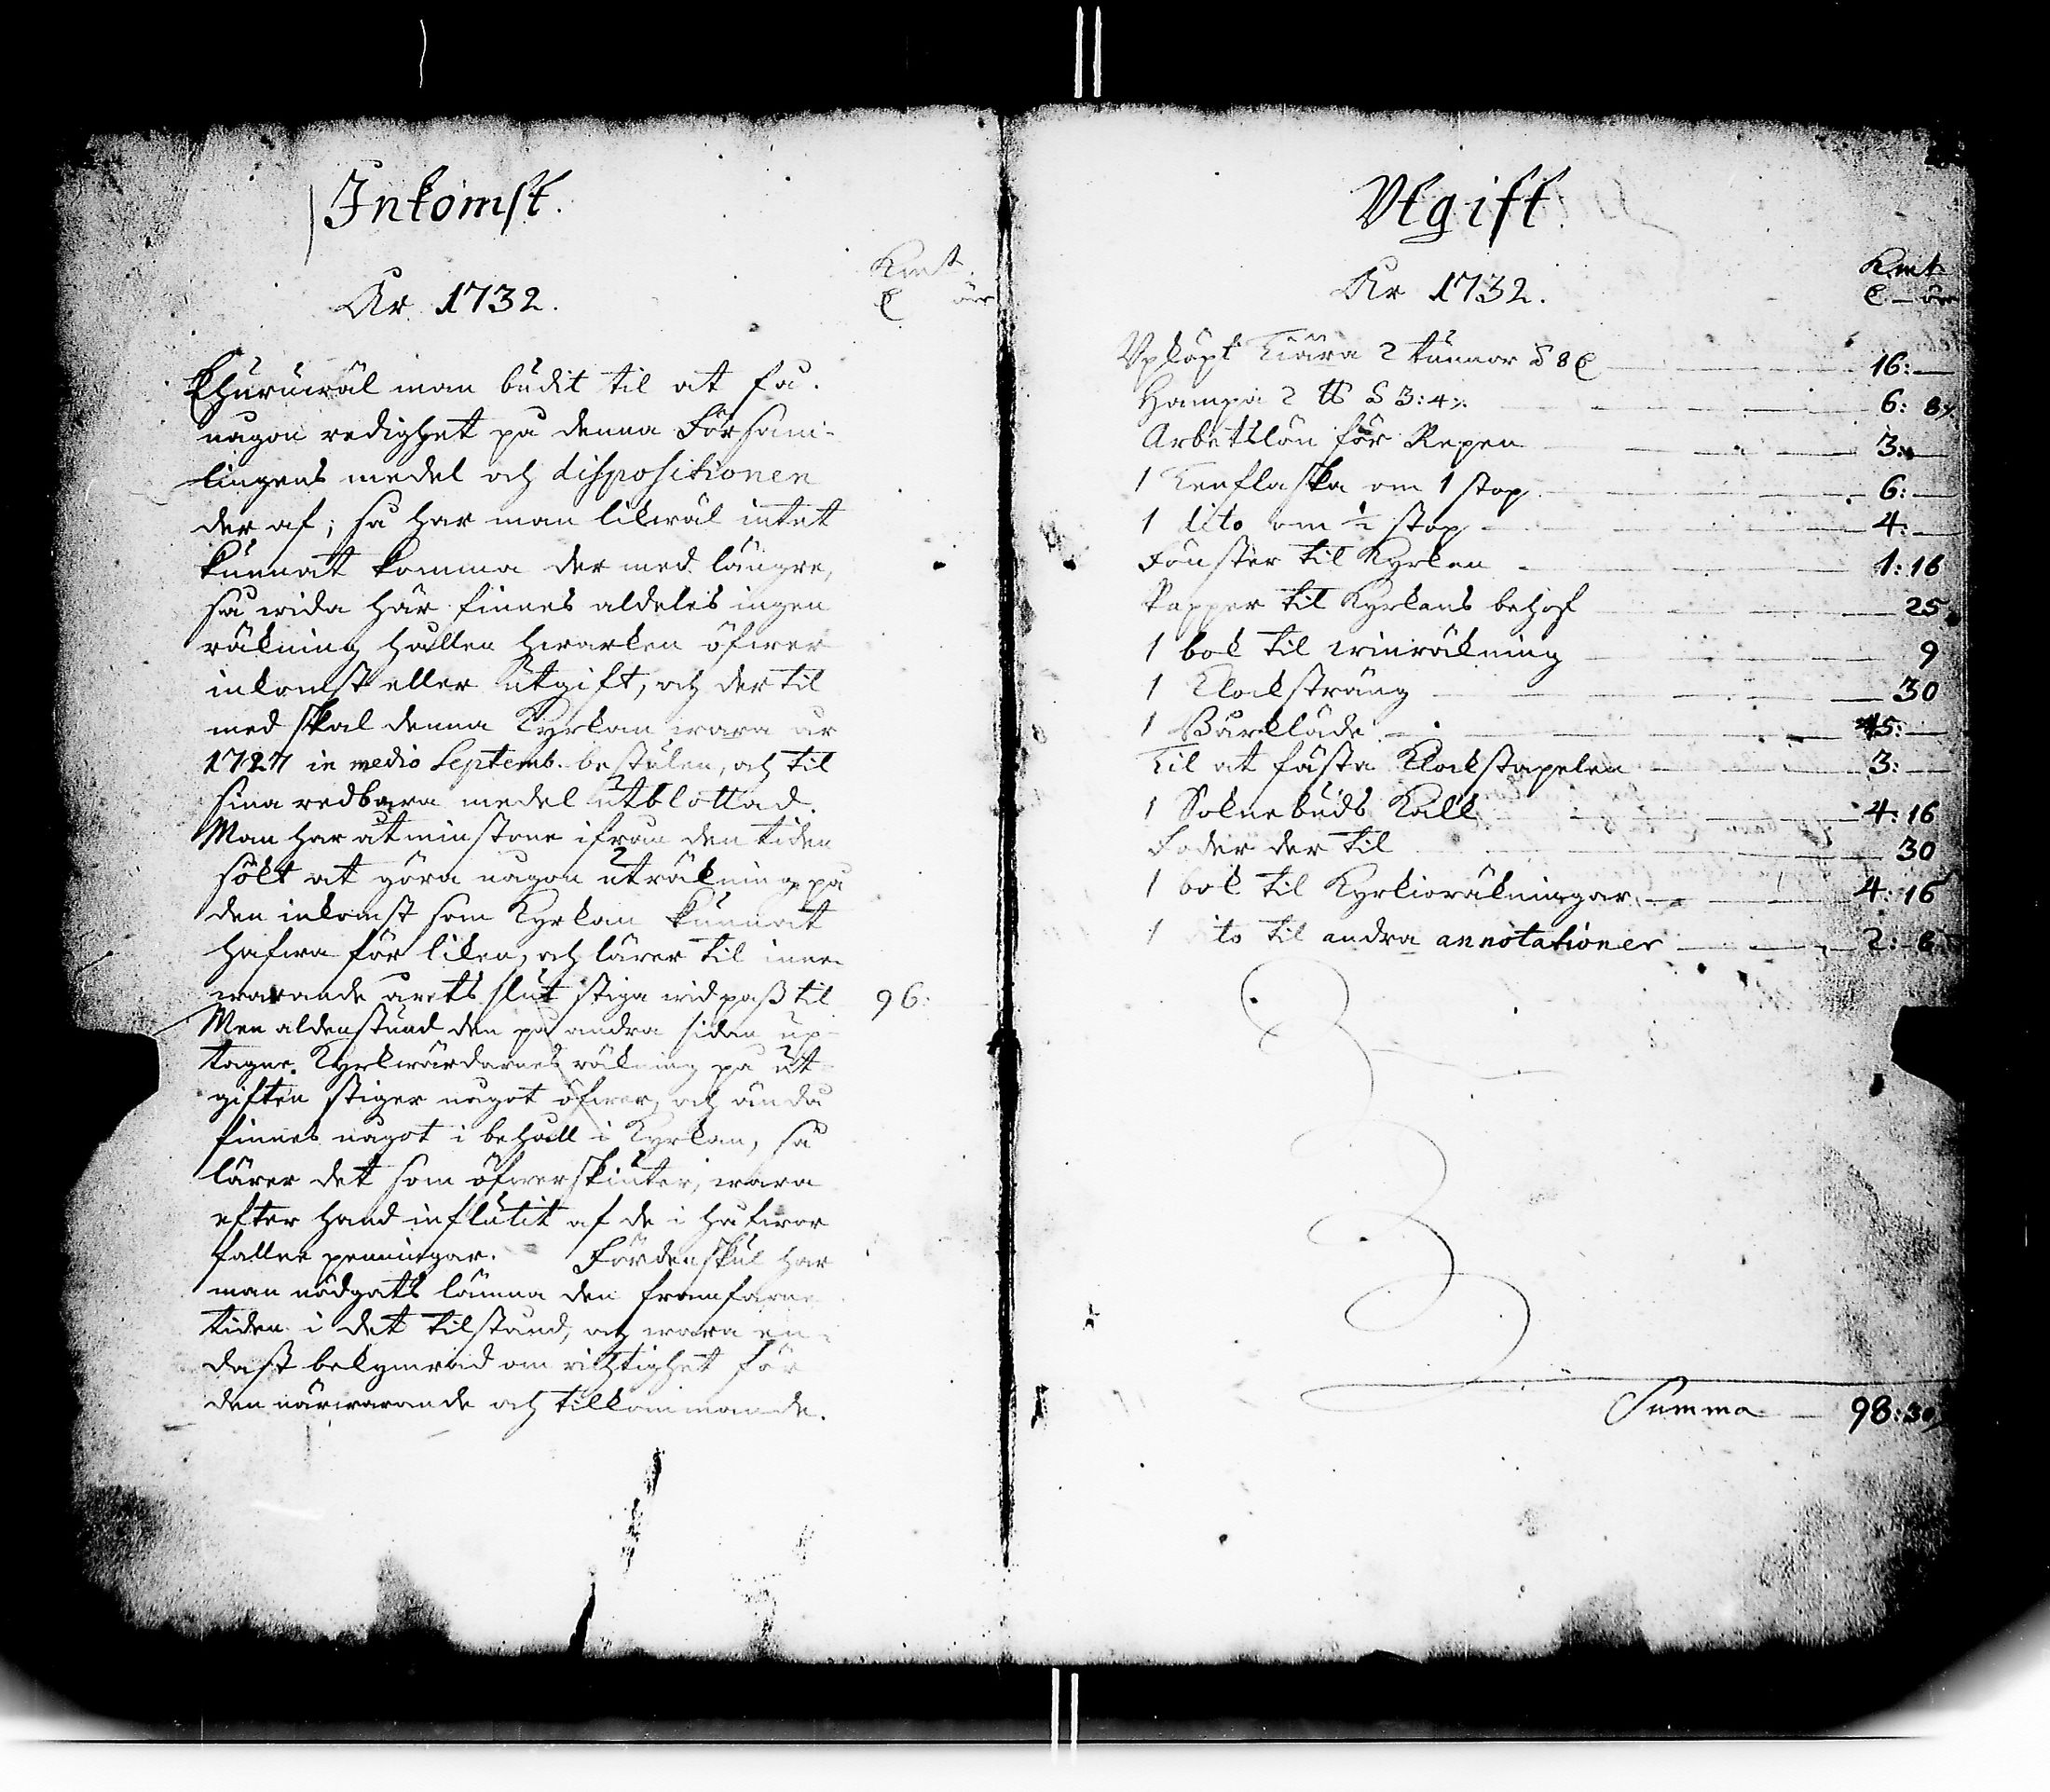 Inkomst.
Kmt.
År 1732.
öre
Ehuruwäl man budit til at få
någon redighet på denna Försam-
lingens medel och dispositionen
der af; så har man likwäl intet
kunnat komma der med längre,
så wida här finnes aldeles ingen
räkning hållen hwarken öfwer
inkomst eller utgift, och der til
med skal denna Kyrkan wara år
1727 in medio Septemb. bestulen, och til
sina redbara medel utblottad.
Man har åtminstone ifrån den tiden
sökt at göra någon uträkning på
den inkomst som Kyrkan kunnat
hafwa för liken, och lärer til inne-
warande årets slut stiga wid pass til 96:
Men aldenstund den på andra sidan up-
tagne Kyrkwärdarnes räkning på ut-
giften stiger något öfwer, och ändå
finnes något i behåll i Kyrkan, så
lärer det som öfwerskjuter, wara
efter hand influtit af de i håfwor
fallne penningar. Fördenskul har
man nödgats lämna den framfarne
tiden i det tilstånd, och wara en-
dast bekymrad om richtighet för
den närwarande och tillkommande.
Utgift.
Kmt
År 1732.
öre
Upköpt Tiära 2 tunnor 16:—
Hampa 2 ℔ 3:4 6: 8
Arbetslön för Repen 3:—
1 Tenflaska om 1 stop 6:—
1 dito om ½ stop 4:—
Fönster til Kyrkan 1:16
Papper til Kyrkans behof 25
1 bok til winräkning 9
1 Klocksträng 30
1 Bårkläde 45:—
Til at fästa Klockstapelen 3:—
1 Soknebuds Kalk 4:16
Foder der til 30
1 bok til Kyrkioräkningar 4:16
1 dito til andra annotationer 2:
Summa — 98:30